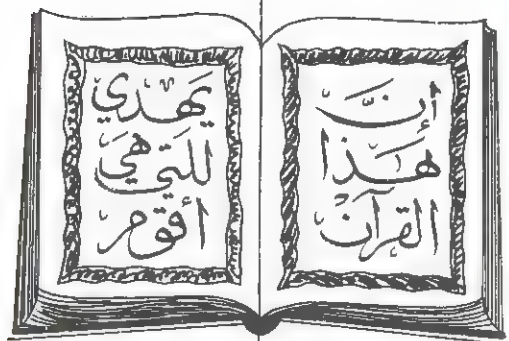 إنّ
هَذا
القرآنَ
يَهدي
للَتي هيَ
أقوم